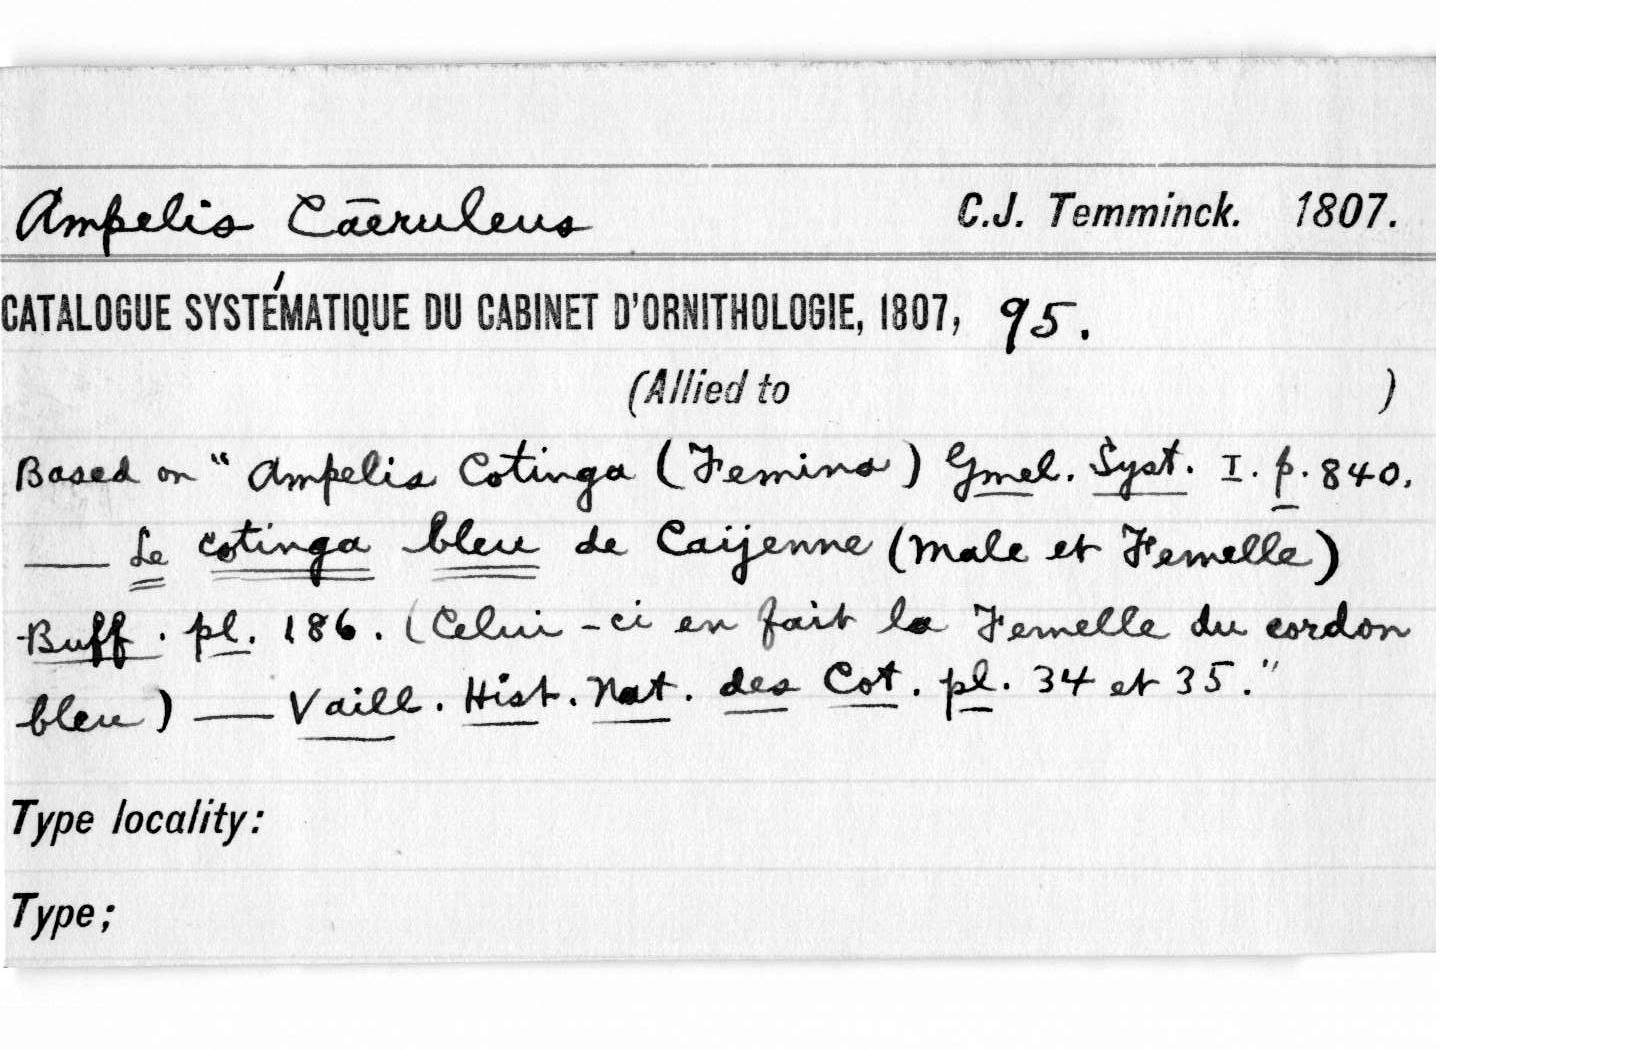 Ampelis Cāeruleus C.J. Temminck. 1807.
CATALOGUE SYSTÉMATIQUE DU CABINET D'ORNITHOLOGIE, 1807, 95.
(Allied to )
Based on "Ampelis Cotinga (Femina) Gmel. Syst. I. p. 840.
— Le cotinga bleu de Caijenne (male et Femelle)
Buff. pl. 186. (Celui-ci en fait la Femelle du cordon
bleu) — Vaill. Hist. Nat. des Cot. pl. 34 et 35."
Type locality:
Type;